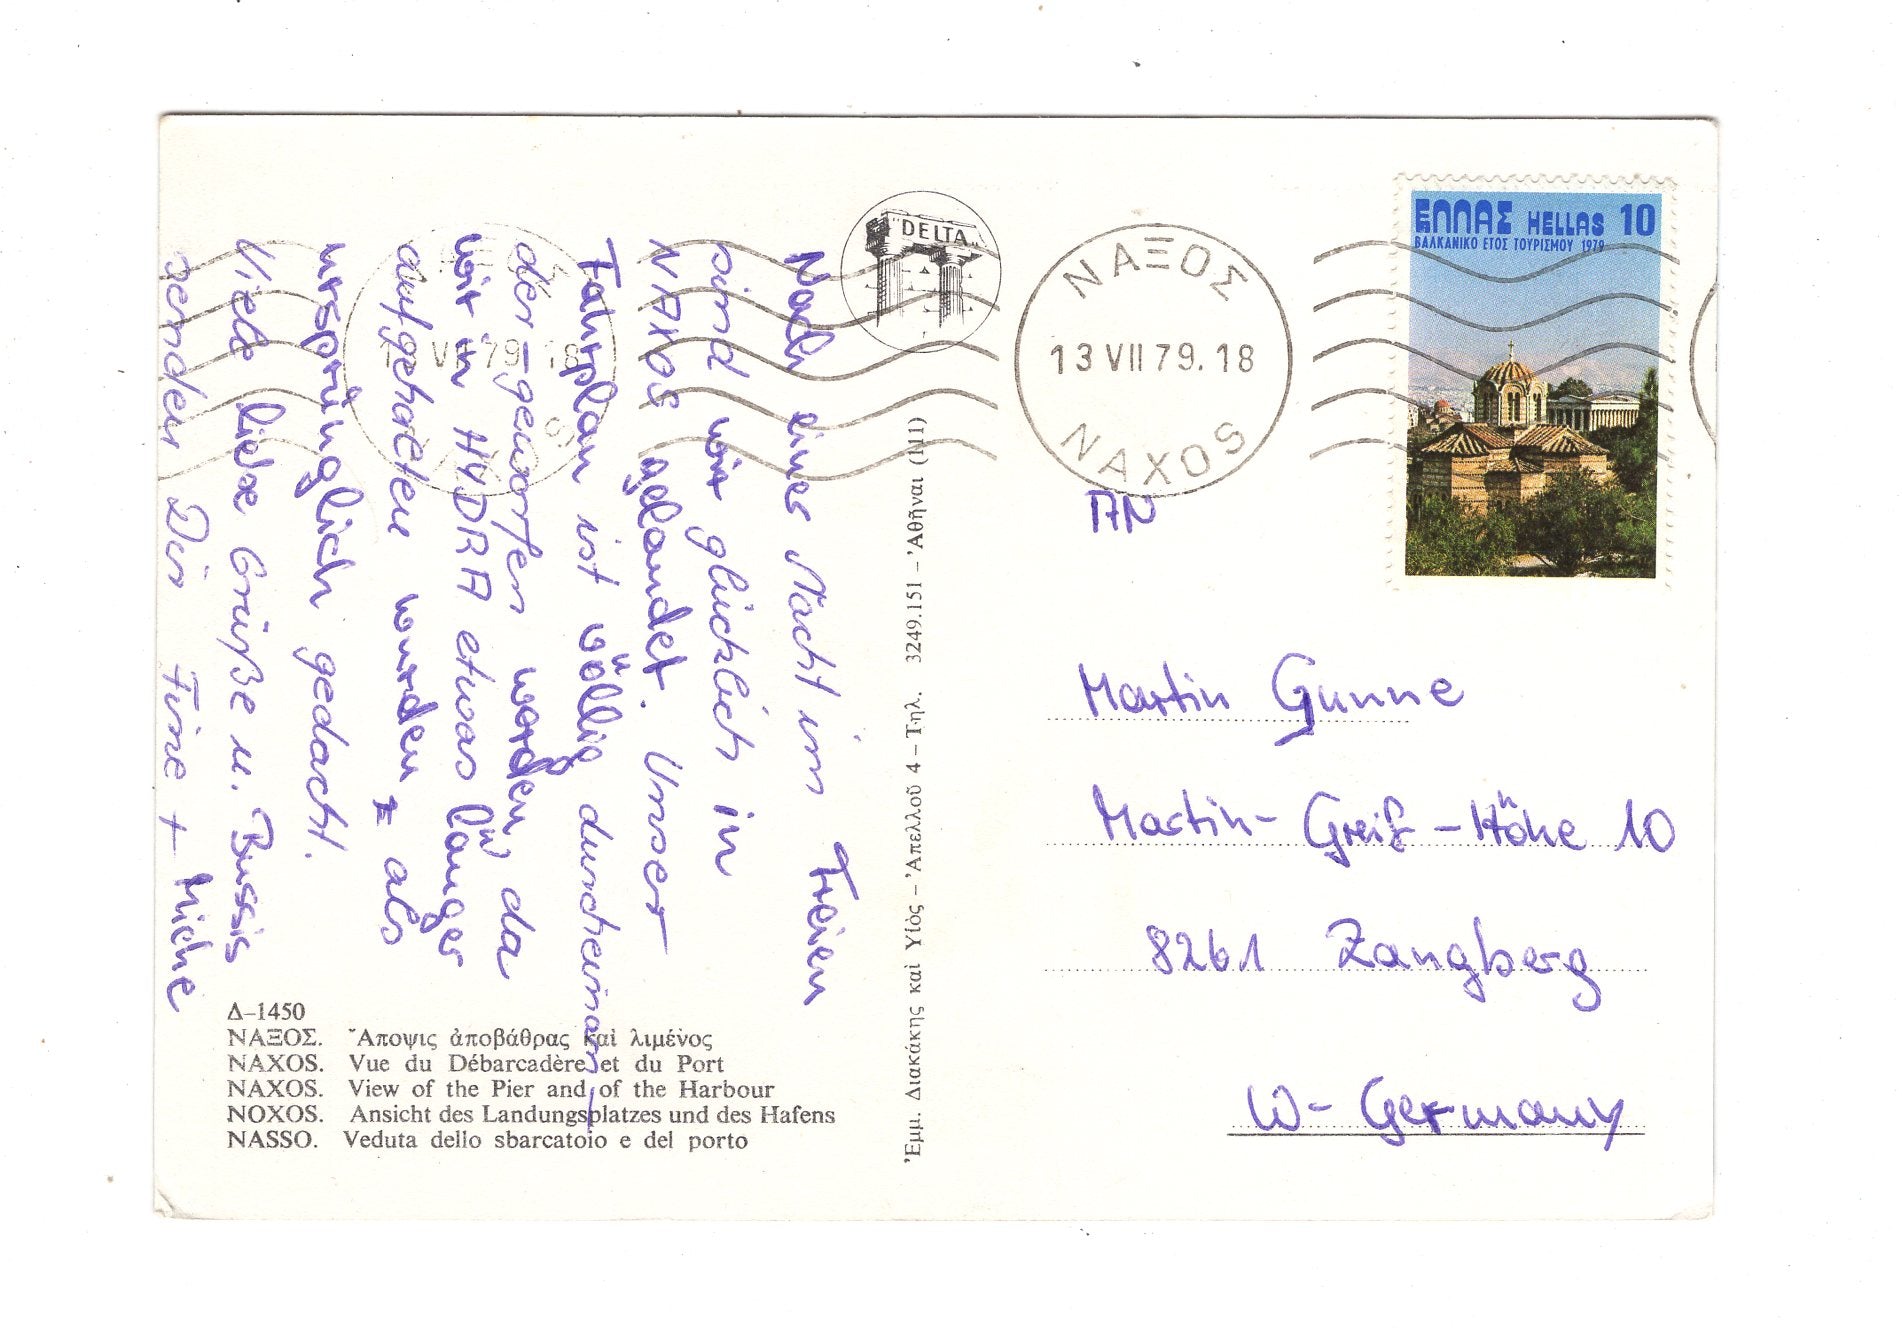 Nach einer Nacht im Freien
sind wir glücklich in
NAXOS gelandet. Unser
Fahrplan ist völlig durcheinan-
der-geworfen worden, da
wir in HYDRA etwas länger
aufgehalten wurden als
ursprünglich gedacht.
Viele liebe Grüße u. Bussis
senden Dir Fine + Miche
Δ–1450
ΝΑΞΟΣ. Ἄποψις ἀποβάθρας καὶ λιμένος
NAXOS. Vue du Débarcadère et du Port
NAXOS. View of the Pier and of the Harbour
NOXOS. Ansicht des Landungsplatzes und des Hafens
NASSO. Veduta dello sbarcatoio e del porto
"DELTA"
Ἐμμ. Διακάκης καὶ Υἱὸς – Ἀπελλοῦ 4 – Τηλ. 3249.151 – Ἀθῆναι (111)
ΝΑΞΟΣ
13 VII 79. 18
NAXOS
13 VII 79. 18
ΕΛΛΑΣ HELLAS 10
ΒΑΛΚΑΝΙΚΟ ΕΤΟΣ ΤΟΥΡΙΣΜΟΥ 1979
AN
Martin Gunne
Martin-Greif-Höhe 10
8261 Zangberg
W-Germany